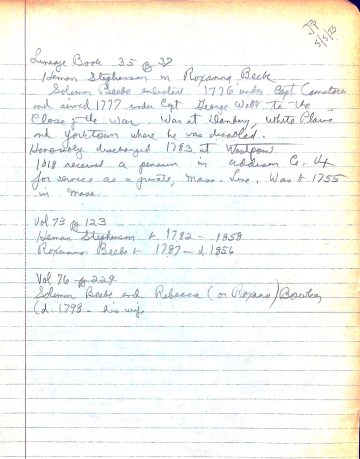 JP
5/5/93
Lineage Book 35 pg 37
Heman Stephenson m Roxanna Beebe
Solomon Beebe enlisted 1776 under Capt Comstock
and served 1777 under Cpt George Webb to the
Close of the War. Was at Danbury, White Plains
and Yorktown where he was disabled.
Honorably discharged 1783 at Westpoint
1818 received a pension in Addison Co. Vt
for service as a private, Mass. Line, Was b 1755
in Mass.
Vol 73 pg 123
Heman Stephenson b 1782 - 1858
Roxanna Beebe b 1787 - d 1856
Vol 76 - pg 229
Solomon Beebe and Rebecca (or Roxana)
(d. 1798 - his wife